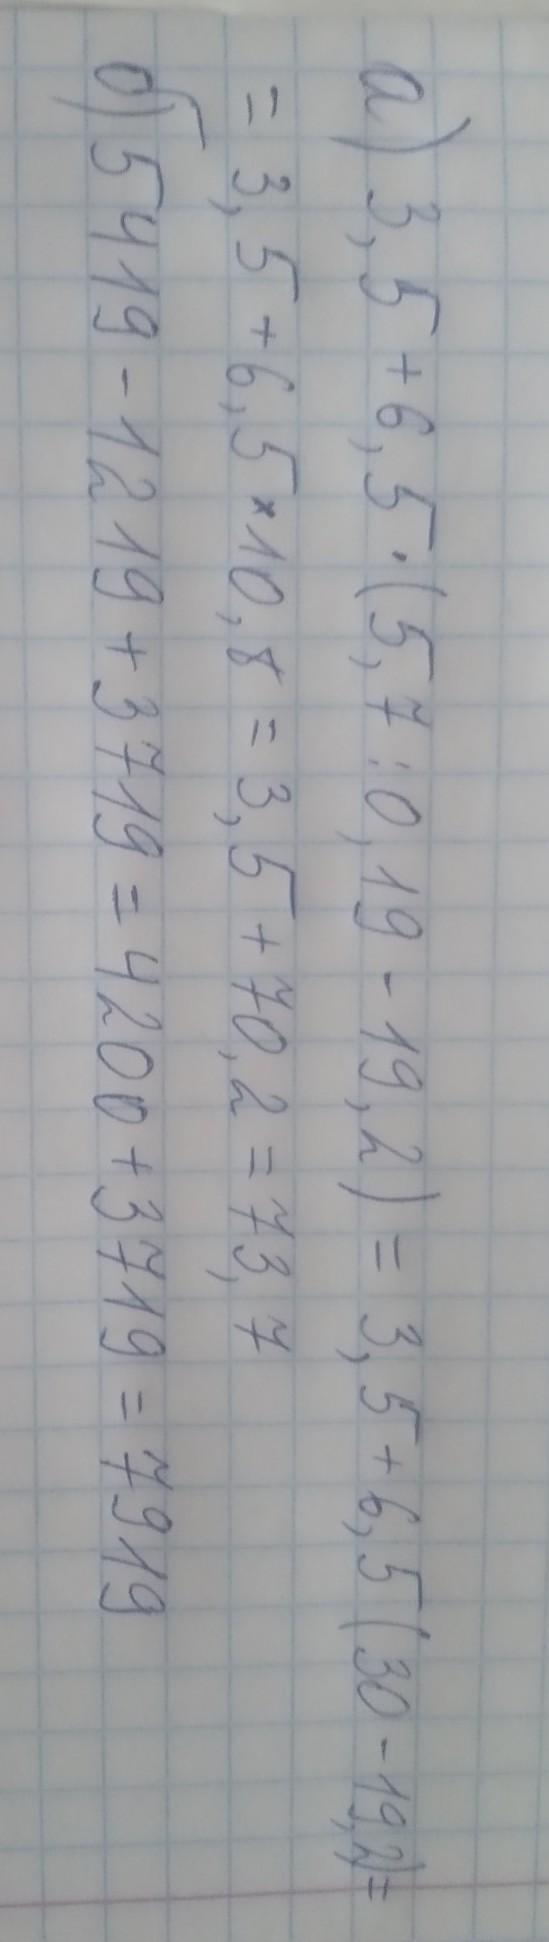 а) 3,5 + 6,5 · (5,7 : 0,19 - 19,2) = 3,5 + 6,5 (30 - 19,2) =
= 3,5 + 6,5 × 10,8 = 3,5 + 70,2 = 73,7
б) 5419 - 1219 + 3719 = 4200 + 3719 = 7919